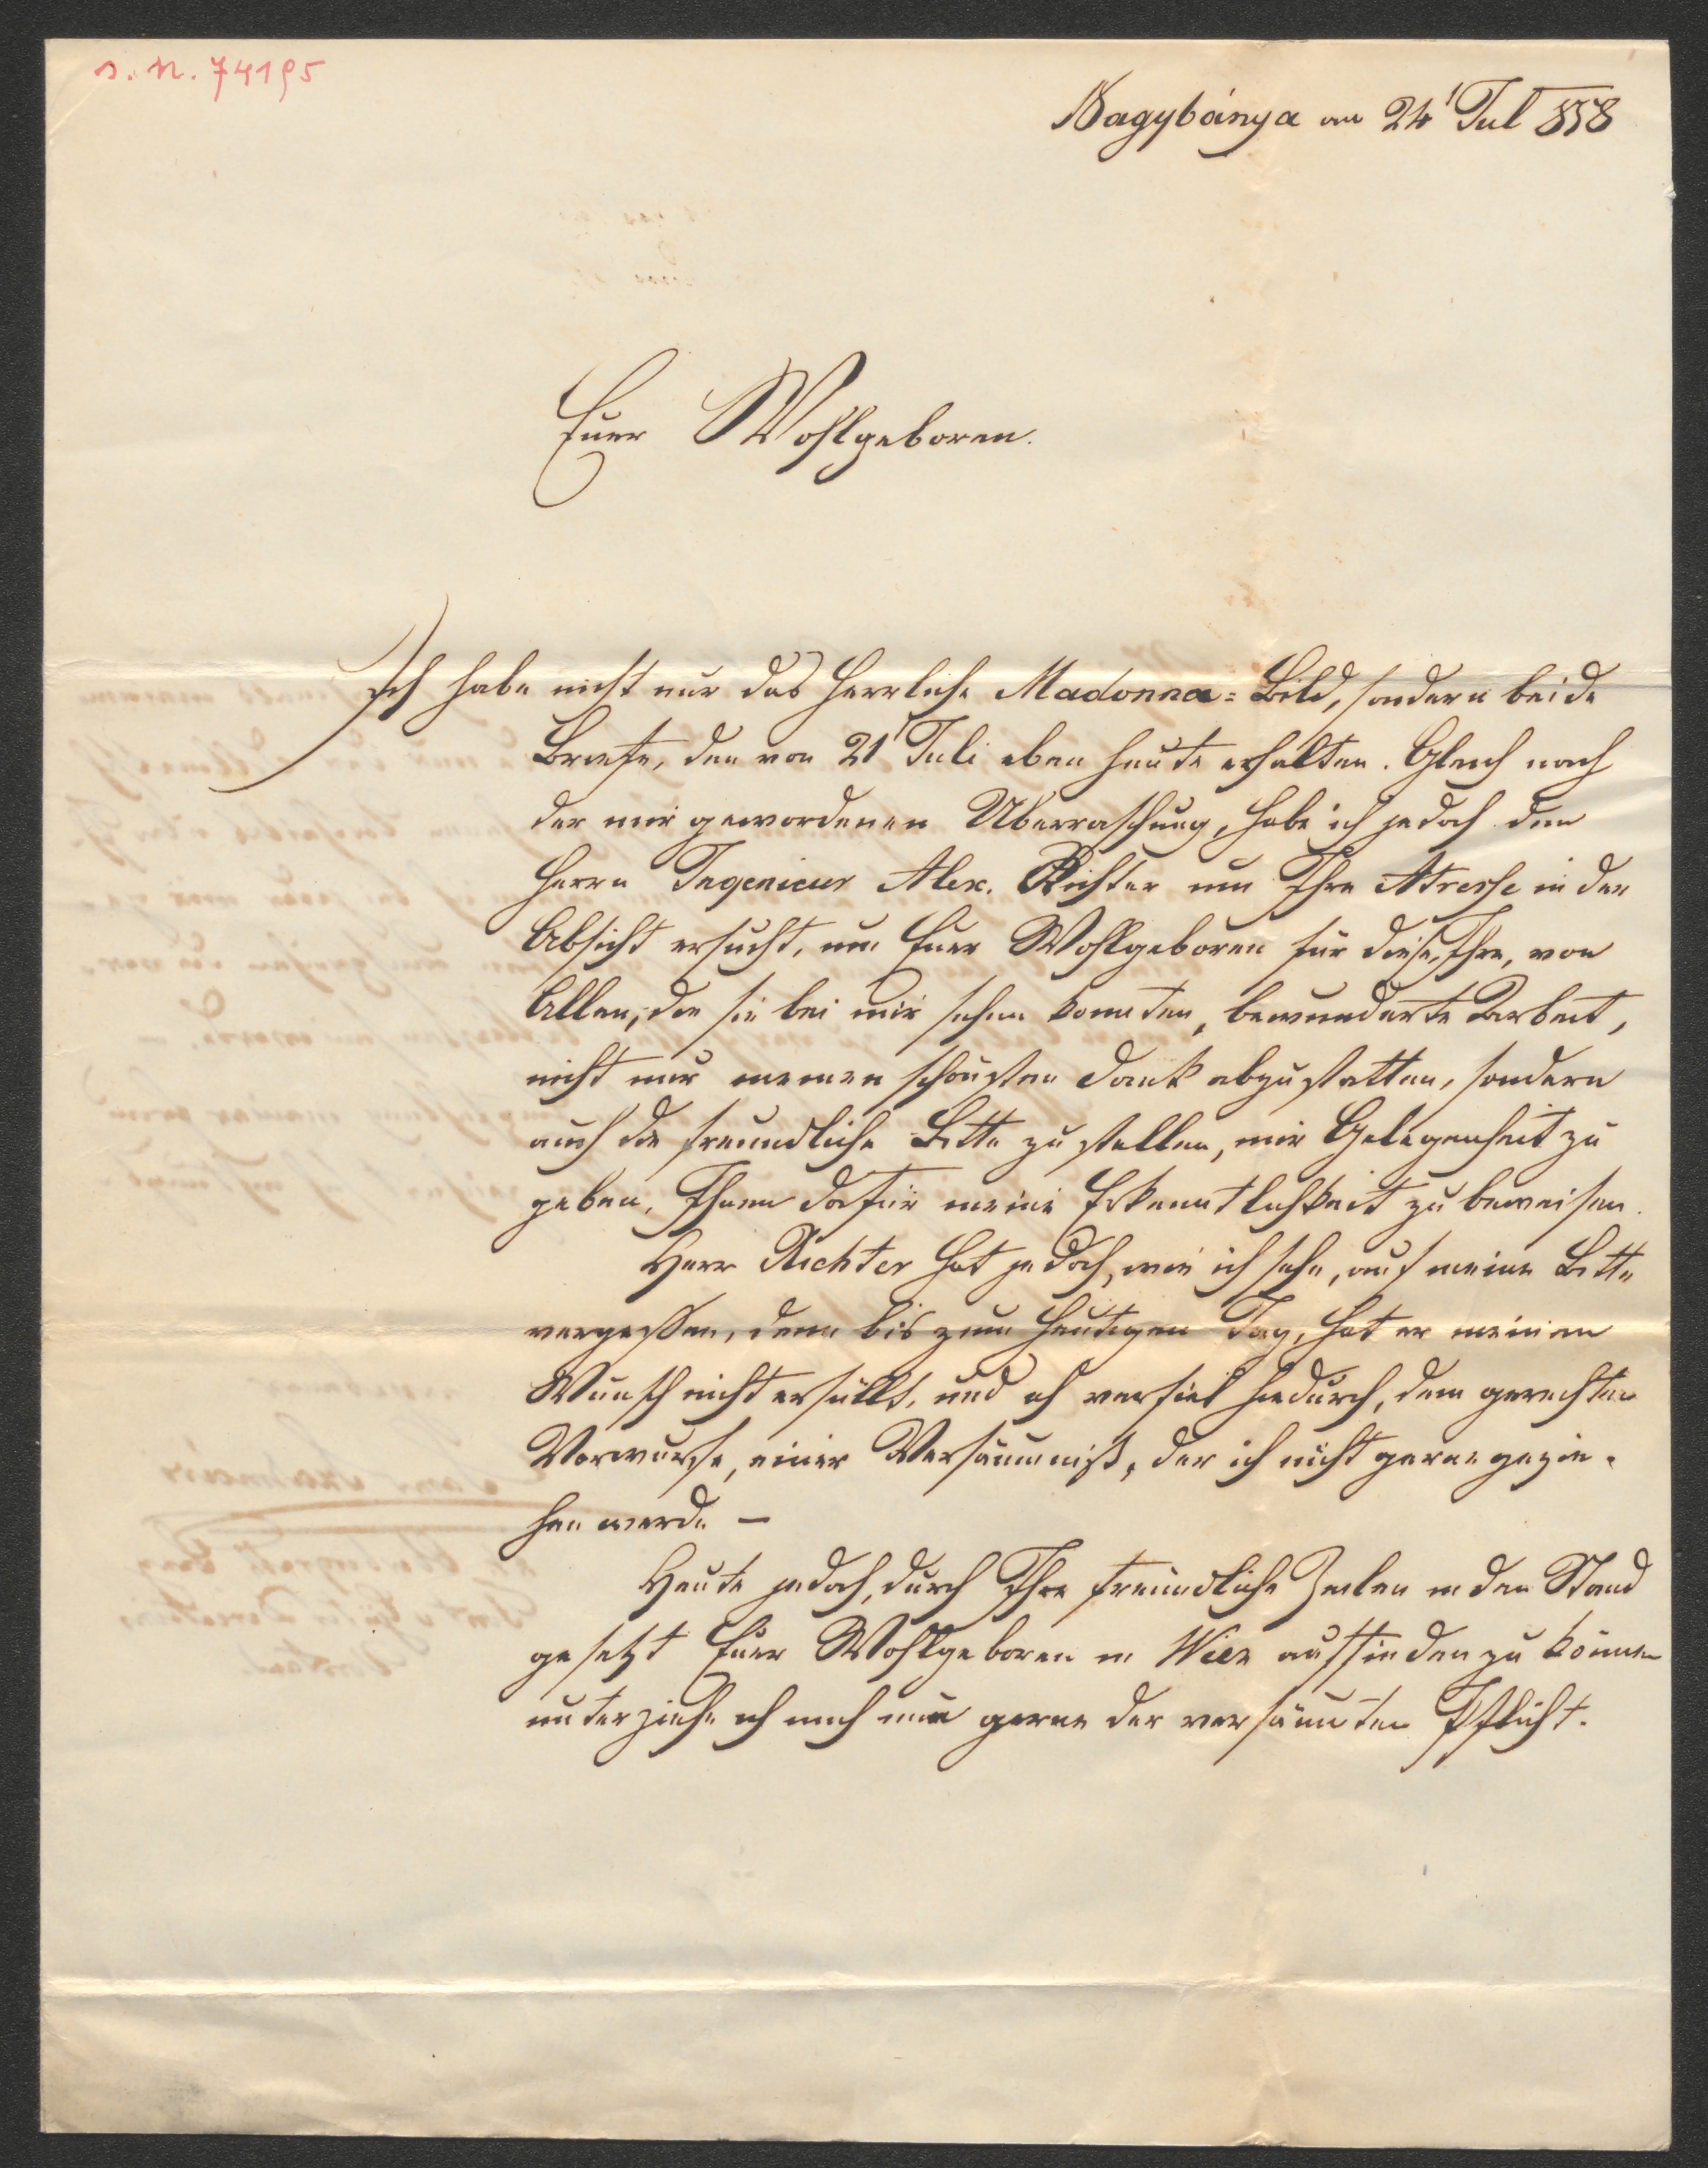 s. n. 74195
Nagybánya am 24' Jul 858
Euer Wohlgeboren.
Ich habe nicht nur das herrliche Madonna=Bild, sondern beide
Briefe, den von 21' Juli eben heute erhalten. Gleich nach
der mir gewordenen Uberraschung, habe ich jedoch den
Herrn Ingenieur Alex. Richter um Ihre Atresse in der
Absicht ersucht, um Euer Wohlgeboren für diese, Ihre, von
Allen, die sie bei mir sehen konnten, bewunderte Arbeit,
nicht nur meinen schönsten Dank abzustatten, sondern
auch die freundliche Bitte zu stellen, mir Gelegenheit zu
geben, Ihnen dafür meine Erkenntlichkeit zu beweisen.
Herr Richter hat jedoch, wie ich sehe, auf meine Bitte
vergessen, denn bis zum heutigen Tag, hat er meinen
Wunsch nicht erfüllt, und ich verfiel hiedurch, dem gerechten
Vorwurfe, einer Versäumniß, der ich nicht gerne gezie-
hen werde –
Heute jedoch, durch Ihre freundliche Zeilen in den Stand
gesetzt Euer Wohlgeboren in Wien auffinden zu können
unterziehe ich mich nun gerne der versäumten Pflicht.